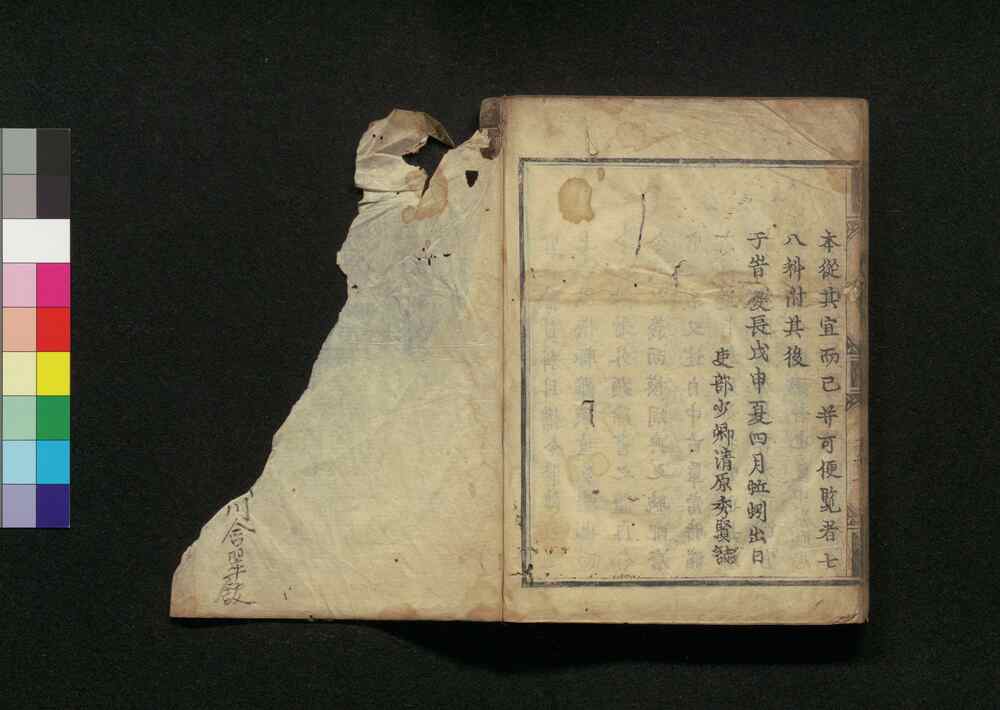 本從其宜而已并可便覧者七
八料附其後
于時慶長戊申夏四月蚯蚓出日
吏部少卿清原秀賢誌
川合